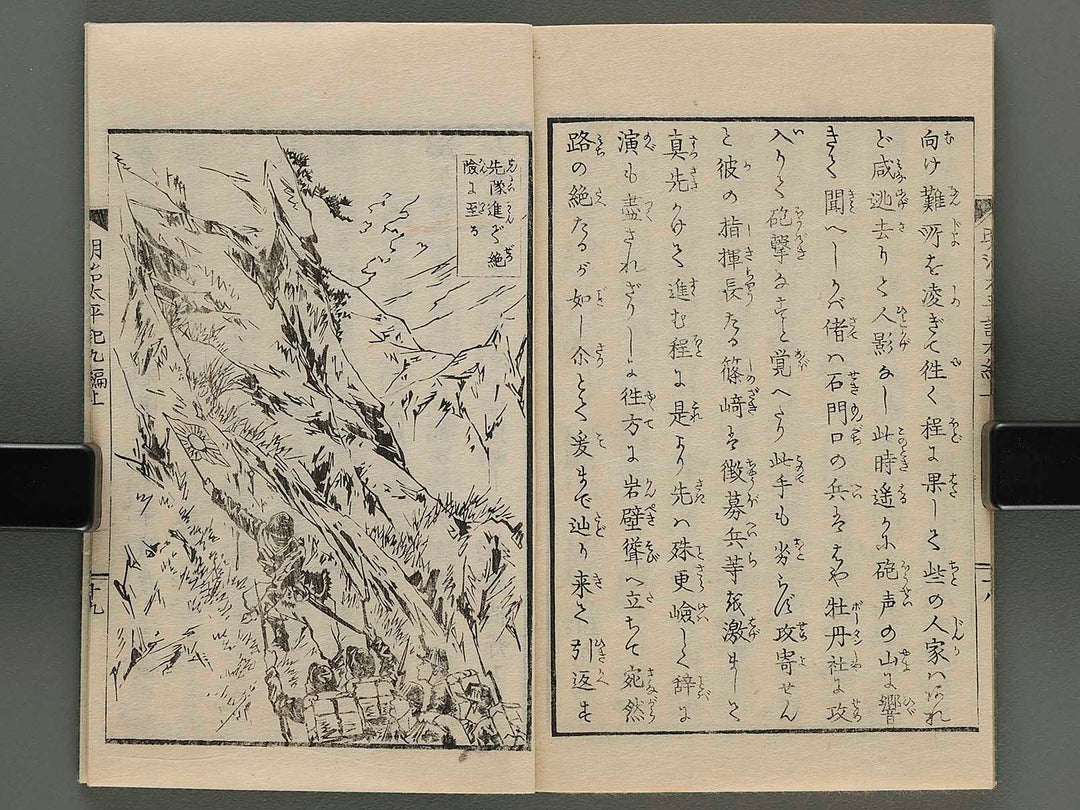 向け難所を凌ぎて徃く程に果して些の人家ハあれ
ど咸逃去りて人影なし此時遥かに砲声の山に響
きて聞へしかバ偖ハ石門口の兵はや牡丹社に攻
入りて砲撃なすと覚へたり此手も劣らず攻寄せん
と彼の指揮長たる篠﨑は徴募兵等を激まして
真先かけて進む程に是より先ハ殊更嶮しく辞に
演も盡されざりしに徃方に岩壁聳へ立ちて宛然
路の絶たるが如し余とて爰まで辿り来て引返す
先隊進で絶
険に至る
明治太平記九編上
十九